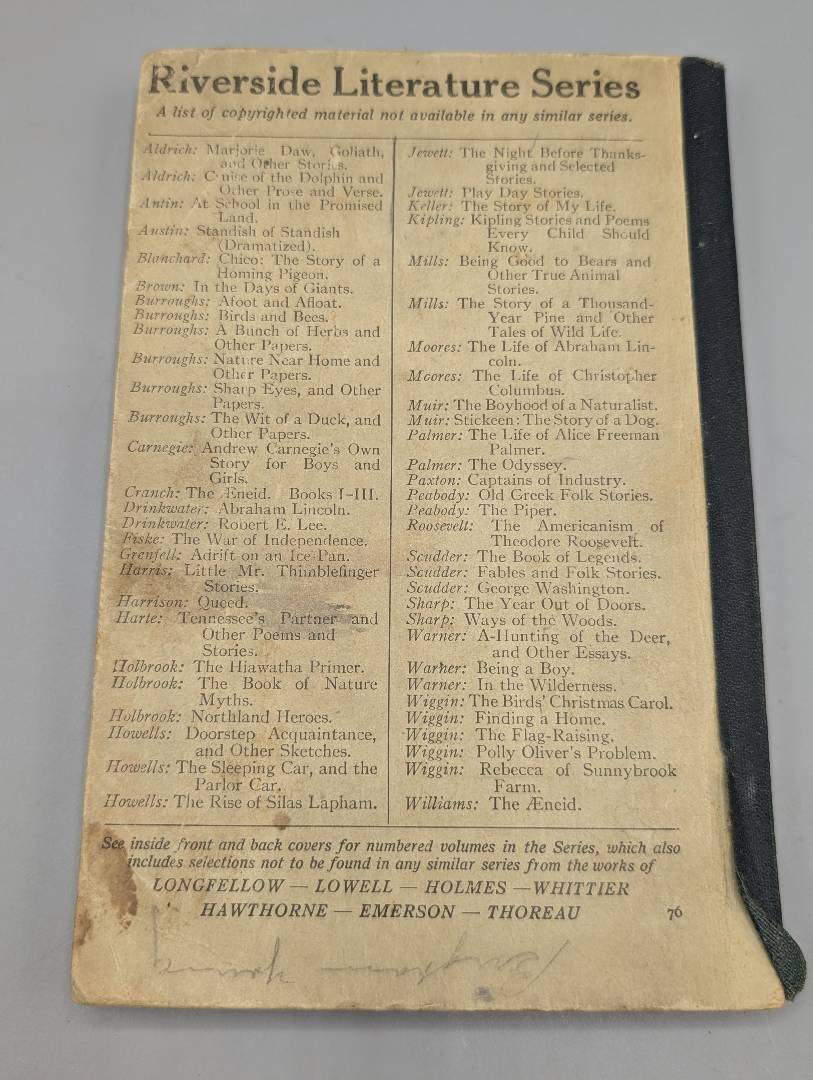 Riverside Literature Series
A list of copyrighted material not available in any similar series.
Aldrich: Marjorie Daw, Goliath,
and Other Stories.
Aldrich: Cruise of the Dolphin and
Other Prose and Verse.
Antin: At School in the Promised
Land.
Austin: Standish of Standish
(Dramatized).
Blanchard: Chico: The Story of a
Homing Pigeon.
Brown: In the Days of Giants.
Burroughs: Afoot and Afloat.
Burroughs: Birds and Bees.
Burroughs: A Bunch of Herbs and
Other Papers.
Burroughs: Nature Near Home and
Other Papers.
Burroughs: Sharp Eyes, and Other
Papers.
Burroughs: The Wit of a Duck, and
Other Papers.
Carnegie: Andrew Carnegie's Own
Story for Boys and
Girls.
Cranch: The Æneid. Books I–III.
Drinkwater: Abraham Lincoln.
Drinkwater: Robert E. Lee.
Fiske: The War of Independence.
Grenfell: Adrift on an Ice-Pan.
Harris: Little Mr. Thimblefinger
Stories.
Harrison: Queed.
Harte: Tennessee's Partner and
Other Poems and
Stories.
Holbrook: The Hiawatha Primer.
Holbrook: The Book of Nature
Myths.
Holbrook: Northland Heroes.
Howells: Doorstep Acquaintance,
and Other Sketches.
Howells: The Sleeping Car, and the
Parlor Car.
Howells: The Rise of Silas Lapham.
Jewett: The Night Before Thanks-
giving and Selected
Stories.
Jewett: Play Day Stories.
Keller: The Story of My Life.
Kipling: Kipling Stories and Poems
Every Child Should
Know.
Mills: Being Good to Bears and
Other True Animal
Stories.
Mills: The Story of a Thousand-
Year Pine and Other
Tales of Wild Life.
Moores: The Life of Abraham Lin-
coln.
Moores: The Life of Christopher
Columbus.
Muir: The Boyhood of a Naturalist.
Muir: Stickeen: The Story of a Dog.
Palmer: The Life of Alice Freeman
Palmer.
Palmer: The Odyssey.
Paxton: Captains of Industry.
Peabody: Old Greek Folk Stories.
Peabody: The Piper.
Roosevelt: The Americanism of
Theodore Roosevelt.
Scudder: The Book of Legends.
Scudder: Fables and Folk Stories.
Scudder: George Washington.
Sharp: The Year Out of Doors.
Sharp: Ways of the Woods.
Warner: A-Hunting of the Deer,
and Other Essays.
Warner: Being a Boy.
Warner: In the Wilderness.
Wiggin: The Birds' Christmas Carol.
Wiggin: Finding a Home.
Wiggin: The Flag-Raising.
Wiggin: Polly Oliver's Problem.
Wiggin: Rebecca of Sunnybrook
Farm.
Williams: The Æneid.
See inside front and back covers for numbered volumes in the Series, which also
includes selections not to be found in any similar series from the works of
LONGFELLOW — LOWELL — HOLMES — WHITTIER
HAWTHORNE — EMERSON — THOREAU
76